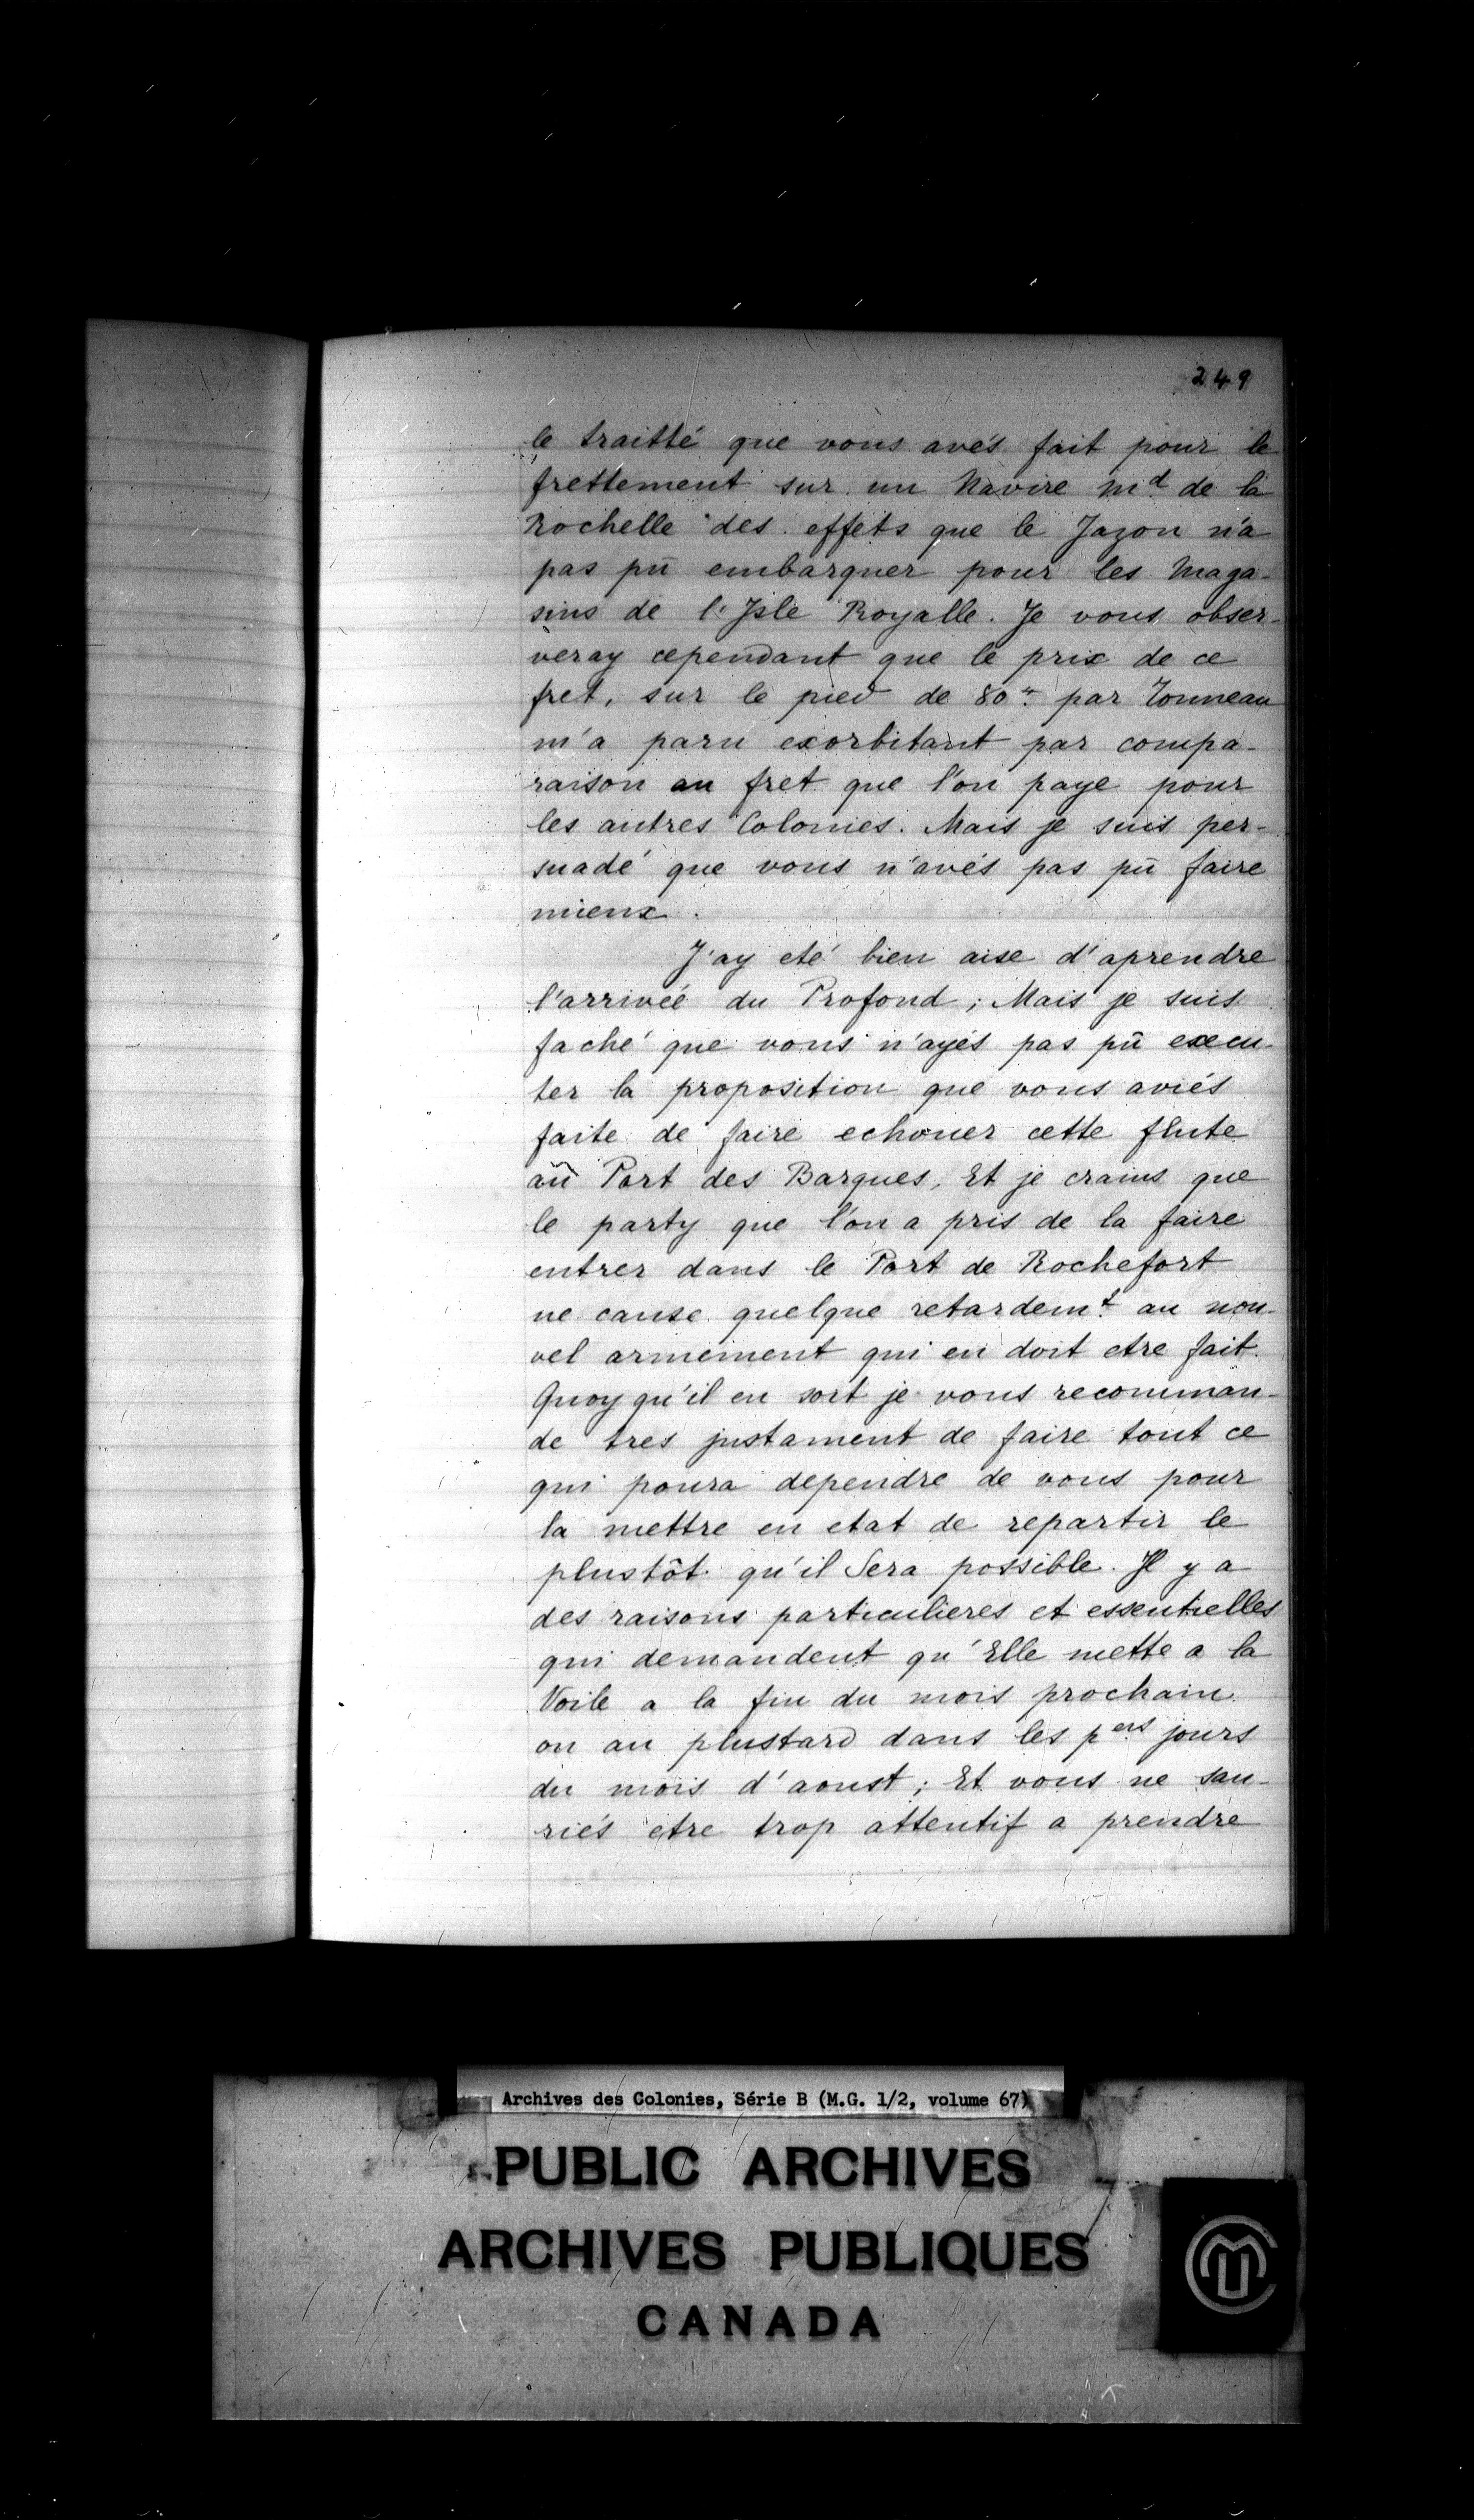 249
le traitté que vous avés fait pour le
frettement sur un Navire md. de la
Rochelle des effets que le Jazon n'a
pas pû embarquer pour les Maga-
sins de l'Isle Royalle. Je vous obser-
veray cependant que le prix de ce
fret, sur le pied de 80# par Tonneau
m'a paru exorbitant par compa-
raison au fret que l'on paye pour
les autres Colonies. Mais je suis per-
suadé que vous n'avés pas pû faire
mieux.
J'ay eté bien aise d'aprendre
l'arrivée du Profond; Mais je suis
faché que vous n'ayés pas pû execu-
ter la proposition que vous aviés
faite de faire echouer cette flute
aû Port des Barques, Et je crains que
le party que l'on a pris de la faire
entrer dans le Port de Rochefort
ne cause quelque retardemt. au nou-
vel armement qui en doit etre fait.
Quoy qu'il en soit je vous recomman-
de tres justament de faire tout ce
qui poura dependre de vous pour
la mettre en etat de repartir le
plustôt qu'il Sera possible. Il y a
des raisons particulieres et essentielles
qui demandent qu'Elle mette a la
Voile a la fin du mois prochain
ou au plustard dans les pers. jours
du mois d'aoust; Et vous ne sau-
riés etre trop attentif a prendre
Archives des Colonies, Série B (M.G. 1/2, volume 67)
PUBLIC ARCHIVES
ARCHIVES PUBLIQUES
CANADA